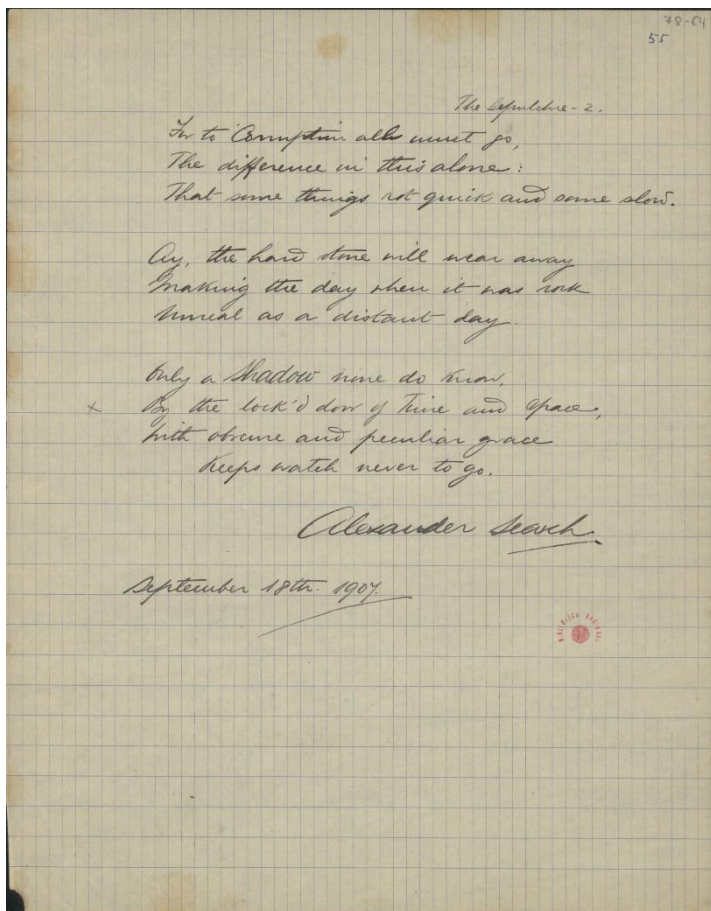 78-64
55
The Sepulchre - 2.
For to Corruption all must go,
The difference in this alone:
That some things rot quick and some slow.
Ay, the hard stone will wear away
Making the day when it was rock
Unreal as a distant day.
Only a Shadow none do know,
x By the lock'd door of Time and Space,
With obscure and peculiar grace
Keeps watch never to go.
Alexander Search.
September 18th. 1907.
BIBLIOTECA NACIONAL